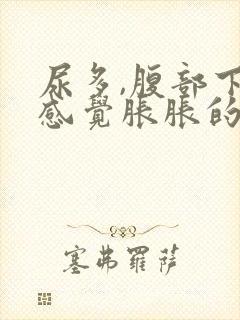 尿多,腹部下
感覺脹脹的
塞弗羅薩